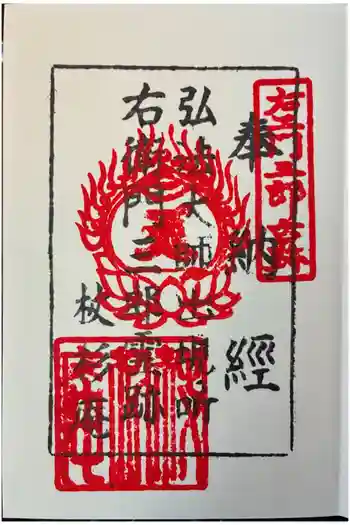 奉納経
弘法大師出現所
右衛門三郎霊跡
杖杉庵
右衛門三郎霊跡